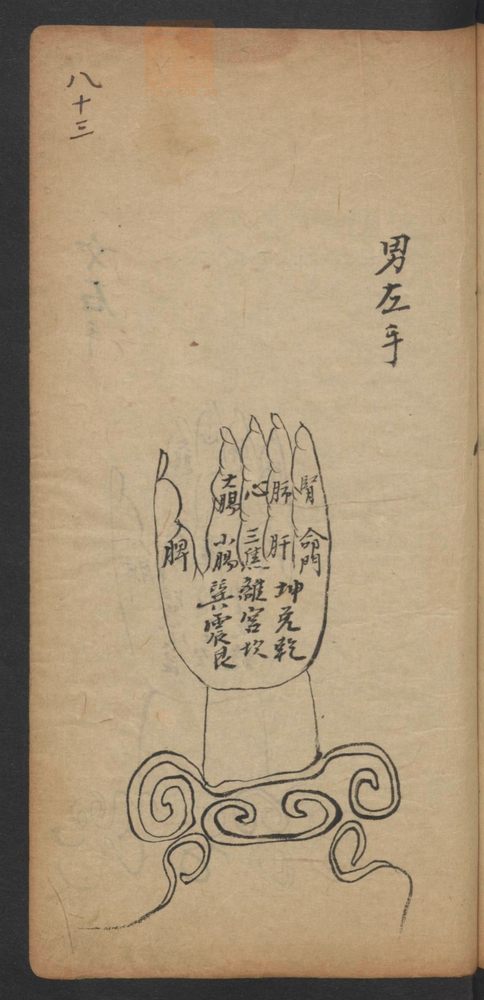 男左手
腎
命門
肺
肝
心
三焦
大腸
小腸
脾
坤兌乾
離宮坎
巽震艮
八十三